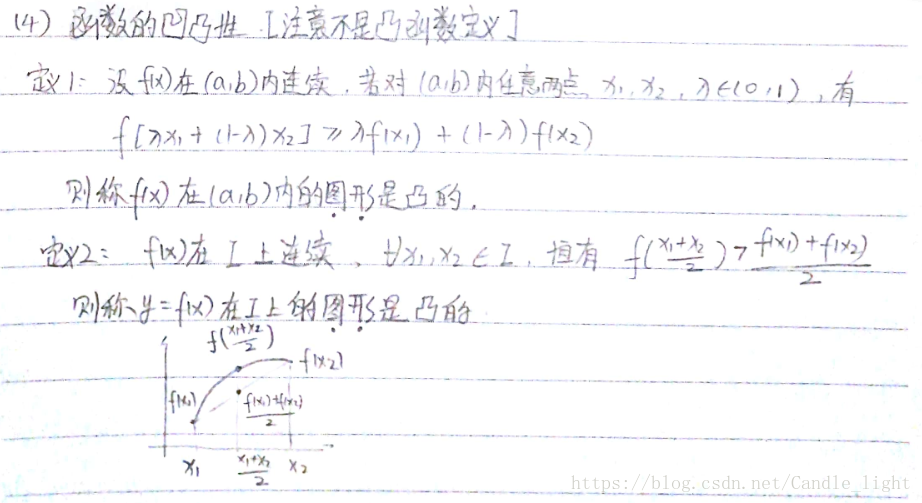 (4) 函数的凹凸性 [注意不是凸函数定义]
定义1: 设f(x)在(a,b)内连续，若对(a,b)内任意两点 x₁,x₂, λ∈(0,1)，有
f[λx₁+(1-λ)x₂] ≥ λf(x₁) + (1-λ)f(x₂)
则称f(x)在(a,b)内的图形是凸的.
定义2: f(x)在I上连续、∀x₁,x₂∈I, 恒有 f((x₁+x₂)/2) > (f(x₁)+f(x₂))/2
则称y=f(x)在I上的图形是凸的
f((x₁+x₂)/2)
f(x₂)
f(x₁)
(f(x₁)+f(x₂))/2
x₁ (x₁+x₂)/2 x₂
https://blog.csdn.net/Candle_light